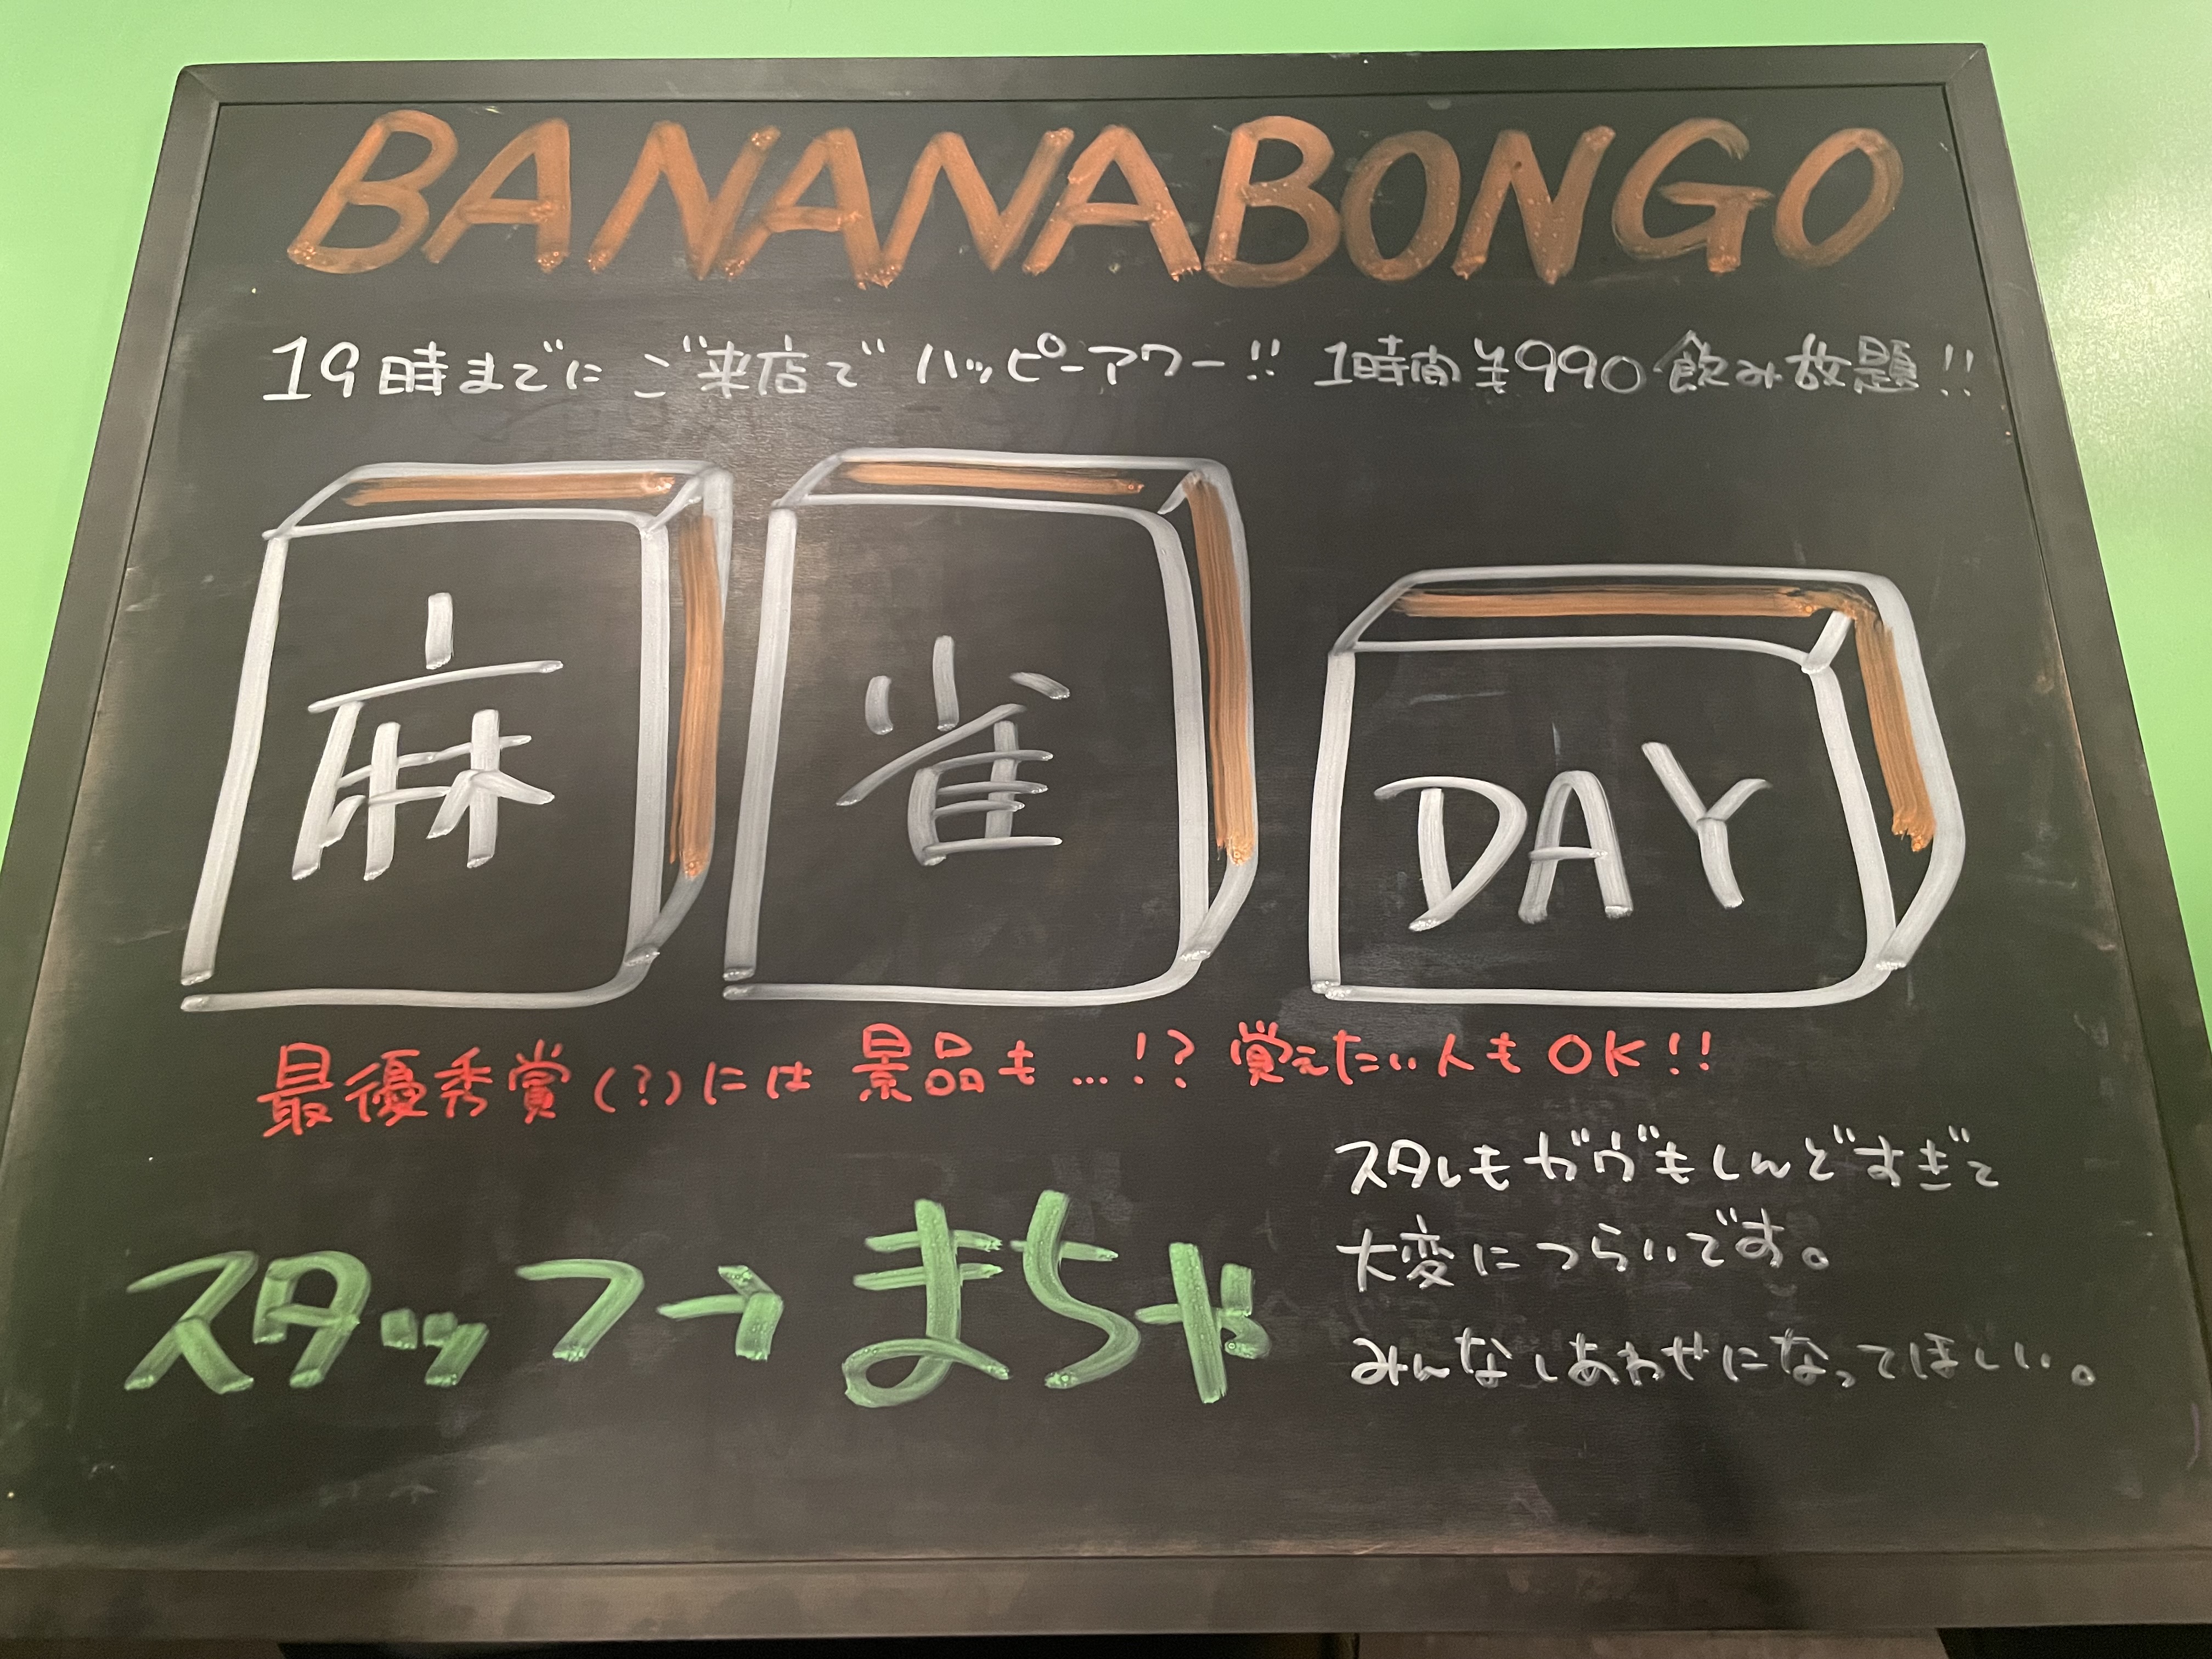 BANANABONGO
19時までにご来店でハッピーアワー!! 1時間¥990飲み放題!!
麻雀 DAY
最優秀賞(?)には景品も…!? 覚えたい人もOK!!
スタレもガヴもしんどすぎて
大変につらいです。
みんなしあわせになってほしい。
スタッフ→まちゃ